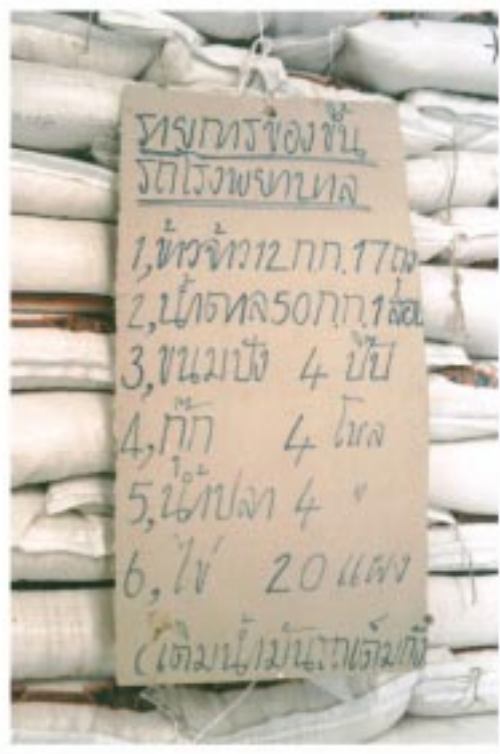 รายการของขึ้น
รถโรงพยาบาล
1,ข้าวจ้าว12กก.17ถุง
2,น้ำตาล50ก.ก.1สอบ
3,ขนมปัง 4 ปี๊ป
4,กุ๊ก 4 โหล
5,น้ำปลา 4 "
6,ไข่ 20 แผง
(เติมน้ำมันรถเต็มถัง